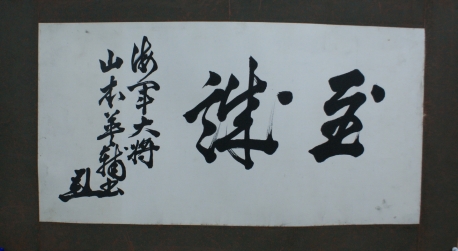 至誠
海軍大将
山本英輔書